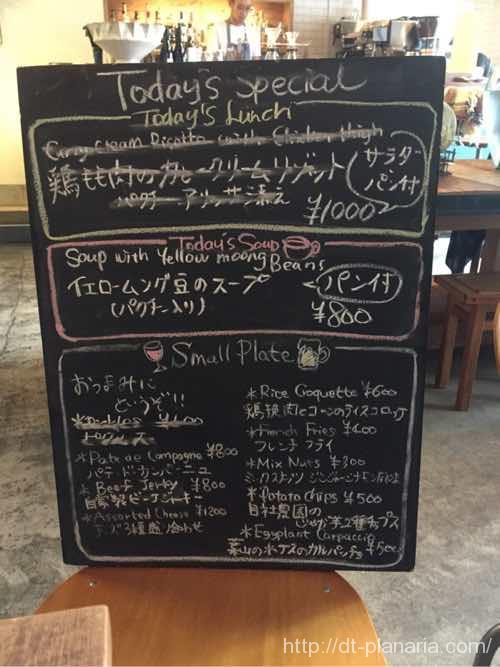 Today's Special
Today's Lunch
Curry Cream Risotto with Chicken thigh
鶏もも肉のカレークリームリゾット
パクチー アリッサ添え
サラダ
パン付
¥1000
Today's Soup
Soup with Yellow moong Beans
イエロームング豆のスープ
(パクチー入り)
パン付
¥800
Small Plate
おつまみに
どうぞ!!
*Pickles ¥400
ピクルス
*Pate de Campagne ¥800
パテ・ド・カンパーニュ
*Beef Jerky ¥800
自家製ビーフジャーキー
*Assorted Cheese ¥1200
チーズ3種盛り合わせ
*Rice Croquette ¥600
鶏挽肉とコーンのライスコロッケ
*French Fries ¥400
フレンチフライ
*Mix Nuts ¥300
ミックスナッツ ジンジャーシナモン
*Potato chips ¥500
自社農園の
じゃが芋2種チップス
*Eggplant Carpaccio
葉山の水ナスのカルパッチョ ¥500
http://dt-planaria.com/